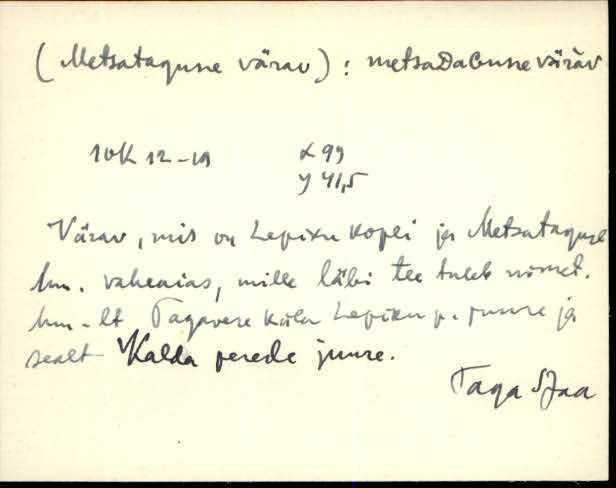 (Metsatagune värav) : metsaDaGune värav
10K 12-19 x 99
y 41,5
Värav, mis on Lepiku kopli ja Metsataguse
hm. vaheaias, mille läbi tee tuleb nimet.
hm-lt Tagavere küla Lepiku p. juure ja
sealt Kalda perede juure.
Taga Jaa